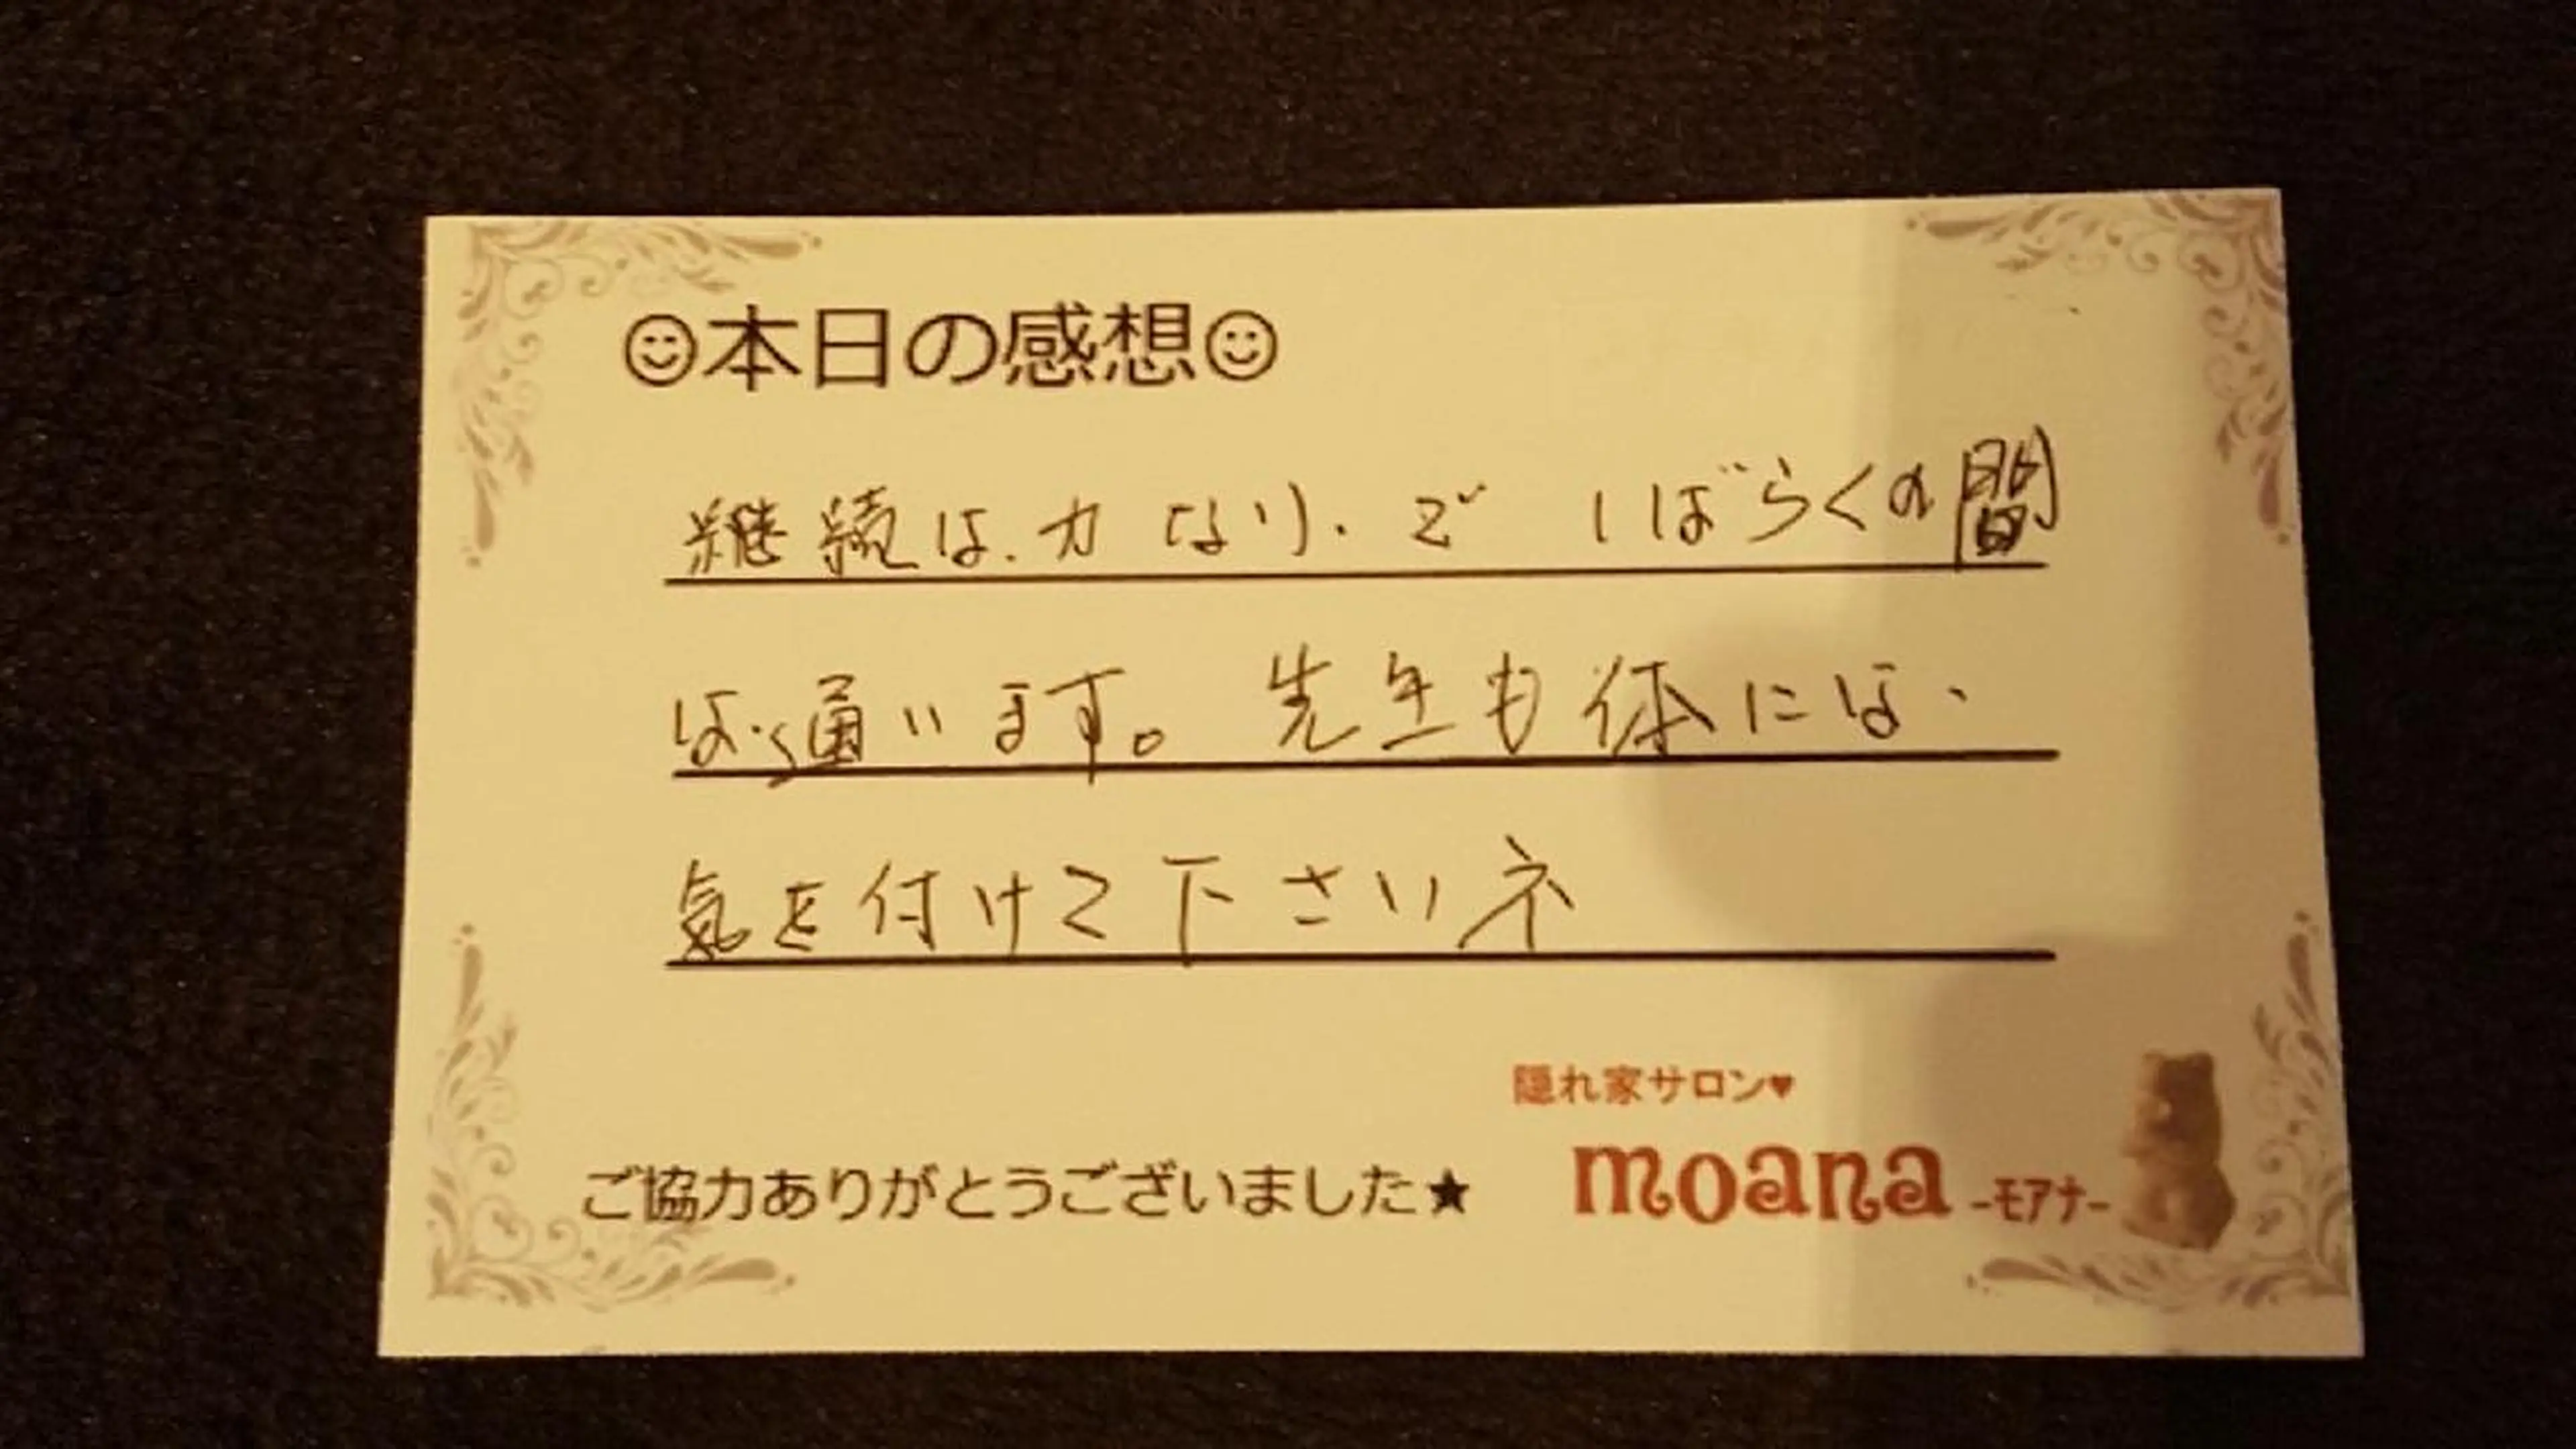 ☺本日の感想☺
継続は、力なり、で しばらくの間
は、通います。先生も体には、
気を付けて下さいネ
隠れ家サロン♥
ご協力ありがとうございました★
moana -モアナ-